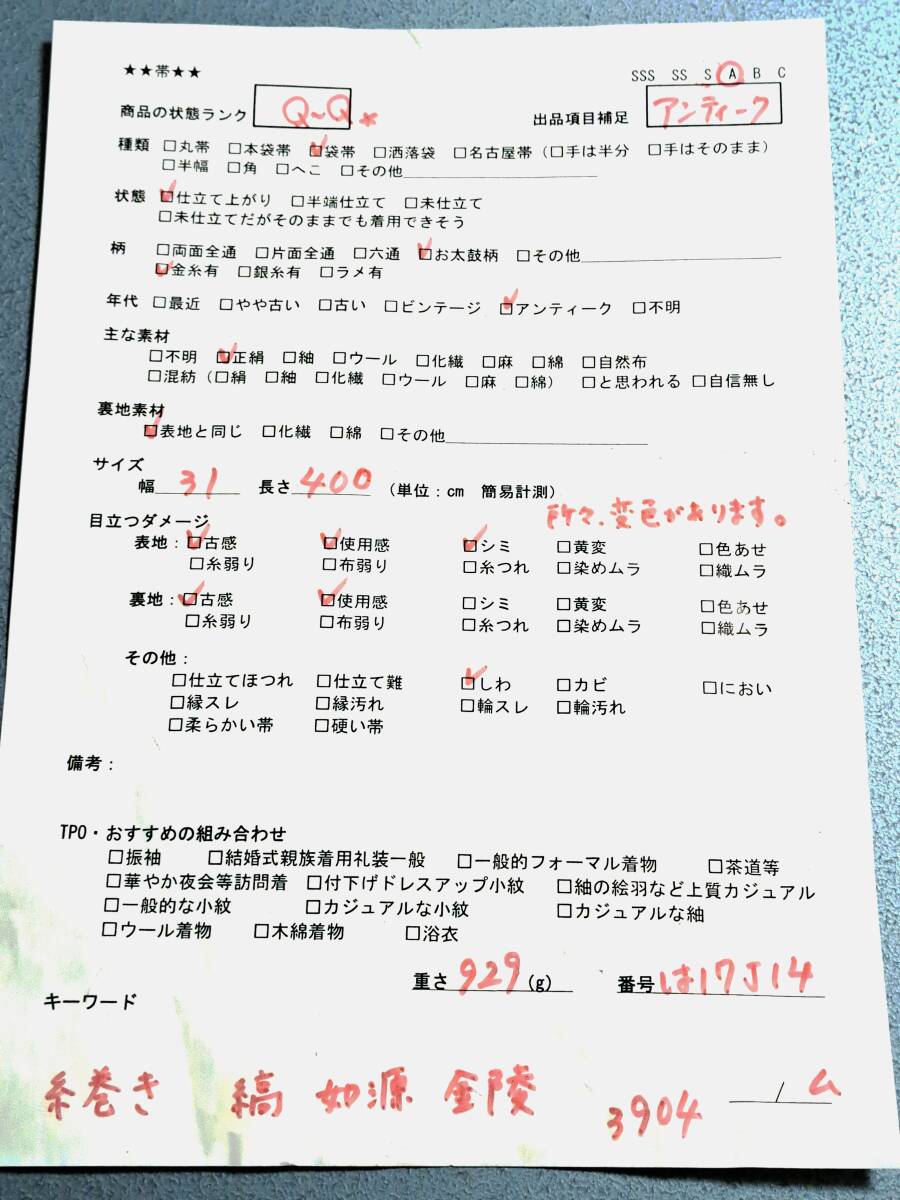 ★★帯★★
SSS SS S A B C
商品の状態ランク Q~Q*
出品項目補足 アンティーク
種類 □丸帯 □本袋帯 □袋帯 □洒落袋 □名古屋帯(□手は半分 □手はそのまま)
□半幅 □角 □へこ □その他
状態 □仕立て上がり □半端仕立て □未仕立て
□未仕立てだがそのままでも着用できそう
柄 □両面全通 □片面全通 □六通 □お太鼓柄 □その他
□金糸有 □銀糸有 □ラメ有
年代 □最近 □やや古い □古い □ビンテージ □アンティーク □不明
主な素材
□不明 □正絹 □紬 □ウール □化繊 □麻 □綿 □自然布
□混紡(□絹 □紬 □化繊 □ウール □麻 □綿) □と思われる □自信無し
裏地素材
□表地と同じ □化繊 □綿 □その他
サイズ
幅 31 長さ 400 (単位:cm 簡易計測)
所々、変色があります。
目立つダメージ
表地:□古感 □使用感 □シミ □黄変 □色あせ
□糸弱り □布弱り □糸つれ □染めムラ □織ムラ
裏地:□古感 □使用感 □シミ □黄変 □色あせ
□糸弱り □布弱り □糸つれ □染めムラ □織ムラ
その他:
□仕立てほつれ □仕立て難 □しわ □カビ □におい
□縁スレ □縁汚れ □輪スレ □輪汚れ
□柔らかい帯 □硬い帯
備考:
TPO・おすすめの組み合わせ
□振袖 □結婚式親族着用礼装一般 □一般的フォーマル着物 □茶道等
□華やか夜会等訪問着 □付下げドレスアップ小紋 □紬の絵羽など上質カジュアル
□一般的な小紋 □カジュアルな小紋 □カジュアルな紬
□ウール着物 □木綿着物 □浴衣
重さ 929 (g) 番号 は17J14
キーワード
糸巻き 縞 如源 金陵 3904 / ム